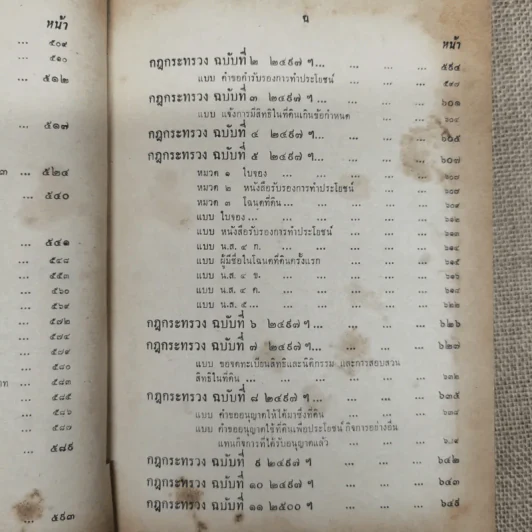 หน้า
... ๕๐๙
... ๕๑๐
... ๕๑๒
... ๕๑๗
๓ ... ๕๒๔
... ๕๔๐
... ๕๔๑
... ๕๔๘
... ๕๕๓
... ๕๖๐
... ๕๖๙
... ๕๗๒
... ๕๗๔
... ๕๗๙
... ๕๘๐
... ๕๘๓
... ๕๘๕
... ๕๘๖
... ๕๘๗
... ๕๘๙
... ๕๙๓
ฉ
หน้า
กฎกระทรวง ฉบับที่ ๒ ๒๔๙๗ ฯ... ... ... ... ๕๙๔
แบบ คำขอคำรับรองการทำประโยชน์ ... ... ...
กฎกระทรวง ฉบับที่ ๓ ๒๔๙๗ ฯ... ... ... ... ๖๐๑
แบบ แจ้งการมีสิทธิในที่ดินเกินข้อกำหนด ... ๖๐๔
กฎกระทรวง ฉบับที่ ๔ ๒๔๙๗ ฯ... ... ... ... ๖๐๕
กฎกระทรวง ฉบับที่ ๕ ๒๔๙๗ ฯ... ... ... ... ๖๐๗
หมวด ๑ ใบจอง ... ... ... ... ... ๖๐๗
หมวด ๒ หนังสือรับรองการทำประโยชน์ ... ... ๖๐๘
หมวด ๓ โฉนดที่ดิน ... ... ... ... ... ๖๐๙
แบบ ใบจอง ... ... ... ... ... ๖๑๒
แบบ หนังสือรับรองการทำประโยชน์ ... ... ... ๖๑๓
แบบ น.ส. ๔ ก. ... ... ... ... ... ๖๑๔
แบบ ผู้มีชื่อในโฉนดที่ดินครั้งแรก ... ... ... ๖๑๕
แบบ น.ส. ๔ ข. ... ... ... ... ... ๖๑๖
แบบ น.ส. ๔ ค. ... ... ... ... ... ๖๑๘
แบบ น.ส. ๕ ... ... ... ... ... ๖๒๒
กฎกระทรวง ฉบับที่ ๖ ๒๔๙๗ ฯ... ... ... ... ๖๒๖
กฎกระทรวง ฉบับที่ ๗ ๒๔๙๗ ฯ... ... ... ... ๖๒๗
แบบ ขอจดทะเบียนสิทธิและนิติกรรม และการสอบสวน
สิทธิในที่ดิน ... ... ... ... ... ๖๓๒
กฎกระทรวง ฉบับที่ ๘ ๒๔๙๗ ฯ... ... ... ... ๖๓๕
แบบ คำขออนุญาตให้ได้มาซึ่งที่ดิน ... ... ...
แบบ คำขออนุญาตใช้ที่ดินเพื่อประโยชน์ กิจการอย่างอื่น
แทนกิจการที่ได้รับอนุญาตแล้ว ... ... ...
กฎกระทรวง ฉบับที่ ๙ ๒๔๙๗ ฯ ... ... ... ๖๔๒
กฎกระทรวง ฉบับที่ ๑๐ ๒๔๙๗ ฯ ... ... ... ๖๔๓
กฎกระทรวง ฉบับที่ ๑๑ ๒๕๐๐ ฯ ... ... ... ๖๔๙